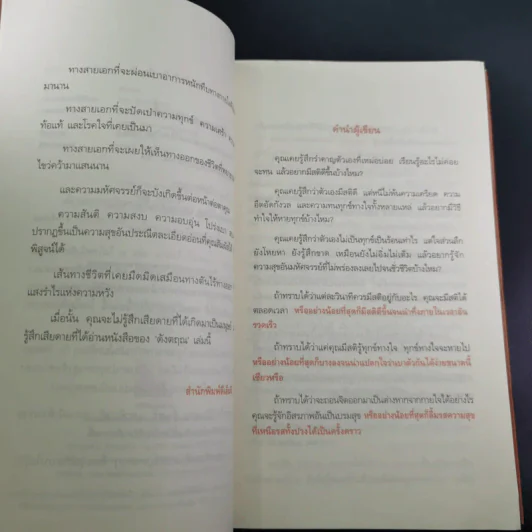 ทางสายเอกที่จะผ่อนเบาอาการหนักทึบทาง
มานาน
ทางสายเอกที่จะปัดเป่าความทุกข์ ความเศร้า
ท้อแท้ และโรคใจที่เคยเป็นมา
ทางสายเอกที่จะเผยให้เห็นทางออกของชีวิตที่
ไขว่คว้ามาแสนนาน
และความมหัศจรรย์ก็จะบังเกิดขึ้นต่อหน้าต่อตาคุณ
ความสันติ ความสงบ ความอบอุ่น โปร่งเบา
ปรากฏขึ้นเป็นความสุขอันประณีตละเอียดอ่อนที่คุณ
พิสูจน์ได้
เส้นทางชีวิตที่เคยมืดมิดเสมือนทางตันไร้ทาง
แสงรำไรแห่งความหวัง
เมื่อนั้น คุณจะไม่รู้สึกเสียดายที่ได้เกิดมาเป็นมนุษย์
รู้สึกเสียดายที่ได้อ่านหนังสือของ 'ดังตฤณ' เล่มนี้
สำนักพิมพ์
คำนำผู้เขียน
คุณเคยรู้สึกรำคาญตัวเองที่เหม่อบ่อย เรียนรู้อะไรไม่ค่อย
จะทน แล้วอยากมีสติดีขึ้นบ้างไหม?
คุณเคยรู้สึกว่าตัวเองมีสติดี แต่หนีไม่พ้นความเครียด ความ
อึดอัดกังวล และความทนทุกข์ทางใจทั้งหลายแหล่ แล้วอยากมีวิธี
ทำให้หายทุกข์บ้างไหม?
คุณเคยรู้สึกว่าตัวเองไม่เป็นทุกข์เป็นร้อนเท่าไร แต่ใจส่วนลึก
ยังโหยหา ยังรู้สึกขาด เหมือนยังไม่อิ่มไม่เต็ม แล้วอยากรู้จัก
ความสุขอันมหัศจรรย์ที่ไม่พร่องลงเลยไปจนชั่วชีวิตบ้างไหม?
ถ้าทราบได้ว่าแต่ละวินาทีควรมีสติอยู่กับอะไร คุณจะมีสติได้
ตลอดเวลา หรืออย่างน้อยที่สุดก็มีสติขึ้นจนน่าทึ่งภายในเวลาอัน
รวดเร็ว
ถ้าทราบได้ว่าแค่คุณมีสติรู้ทุกข์ทางใจ ทุกข์ทางใจจะหายไป
หรืออย่างน้อยที่สุดก็บางลงจนน่าแปลกใจว่าเบาตัวกันได้ง่ายขนาดนี้
เชียวหรือ
ถ้าทราบได้ว่าจะถอนจิตออกมาเป็นต่างหากจากกายใจได้อย่างไร
คุณจะรู้จักอิสรภาพอันเป็นบรมสุข หรืออย่างน้อยที่สุดก็ลิ้มรสความสุข
ที่เหนือรสทั้งปวงได้เป็นครั้งคราว